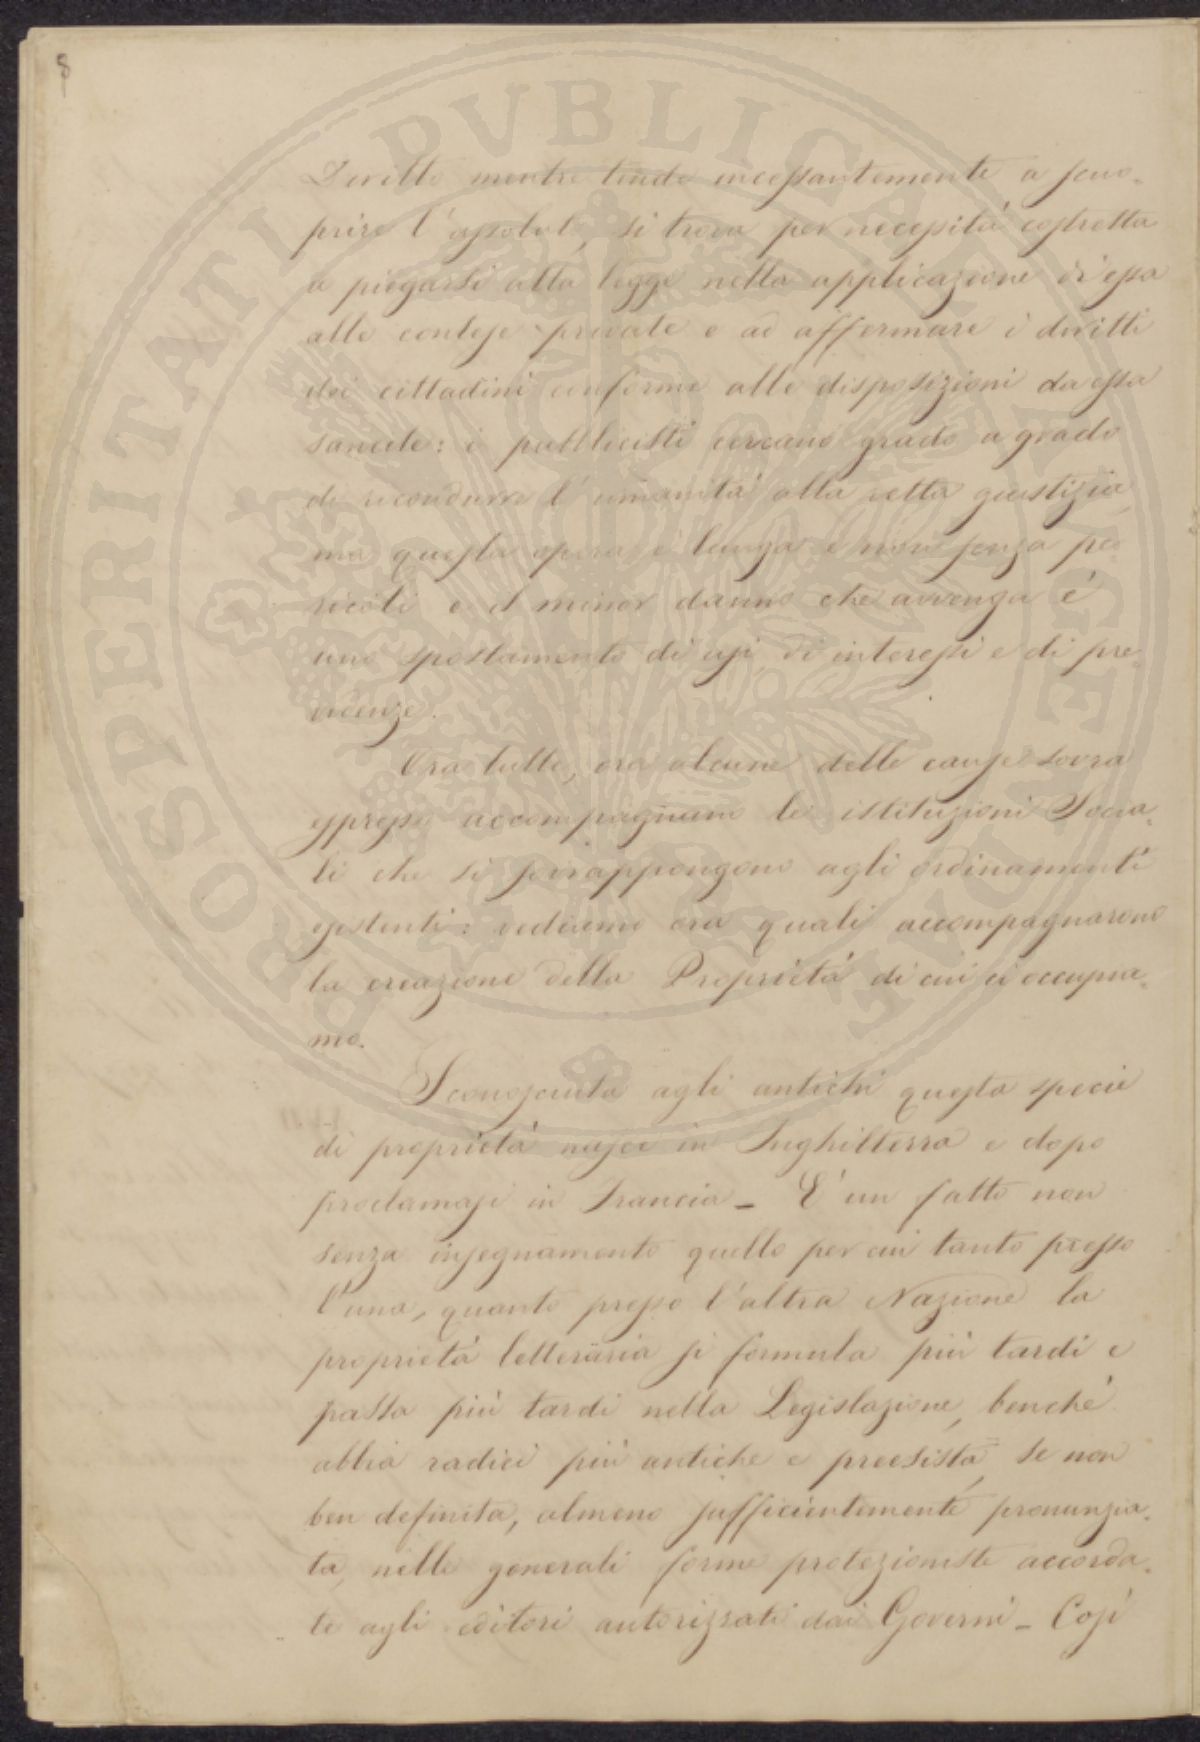 8
Diritto mentre tende incessantemente a scuo-
prire l'assoluto, si trova per necessità costretta
a piegarsi alla legge nella applicazione di essa
alle contese private e ad affermare i diritti
dei cittadini conforme alle disposizioni da essa
sancite: i pubblicisti cercano grado a grado
di ricondurre l'umanità alla retta giustizia,
ma questa opera è lunga e non senza pe-
ricoli e il minor danno che avvenga è
uno spostamento di usi, di interessi e di pre-
videnze.
Ora tutte, ora alcune delle cause sovra
espresse accompagnano le istituzioni Socia-
li che si sovrappongono agli ordinamenti
esistenti: vediamo ora quali accompagnarono
la creazione della Proprietà di cui ci occupia-
mo.
Sconosciuta agli antichi questa specie
di proprietà nasce in Inghilterra e dopo
proclamasi in Francia - E' un fatto non
senza insegnamento quello per cui tanto presso
l'una, quanto presso l'altra Nazione la
proprietà letteraria si formula più tardi e
passa più tardi nella Legislazione, benché
abbia radici più antiche e preesista, se non
ben definita, almeno sufficientemente pronunzia-
ta, nelle generali forme protezioniste accorda-
te agli editori autorizzati dai Governi - Così
PROSPERITATI PVBLICAE AVGENDAE